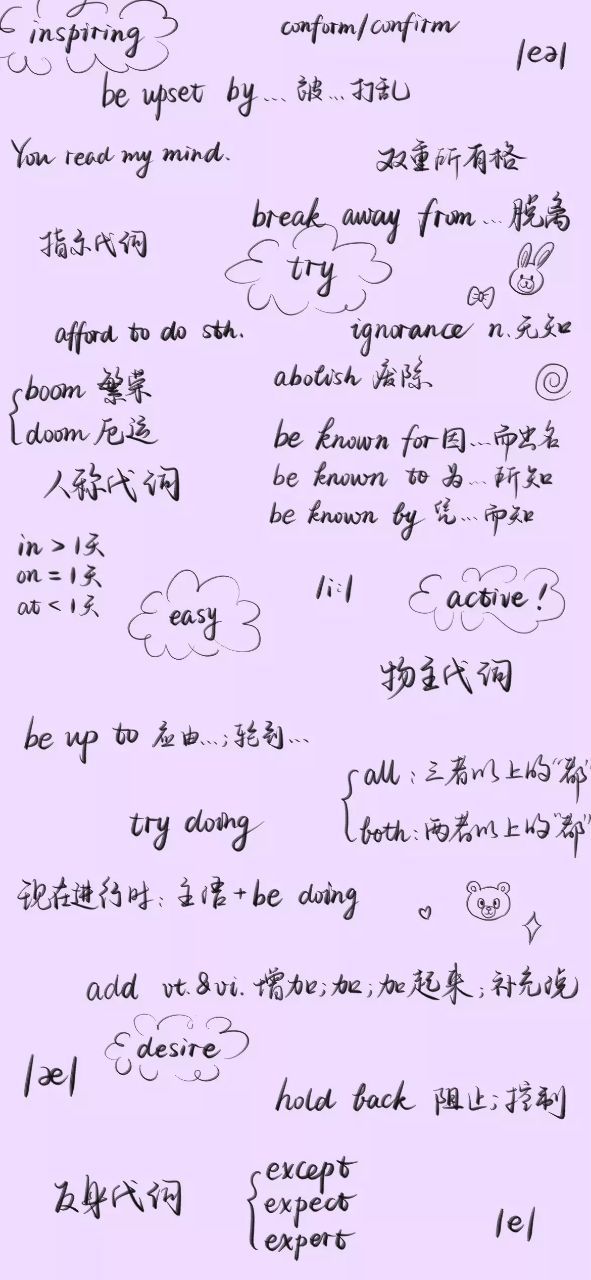 inspiring
conform/confirm
/eə/
be upset by... 被...打乱
You read my mind.
双重所有格
break away from...脱离
指示代词
try
afford to do sth.
ignorance n.无知
boom 繁荣
doom 厄运
abolish 废除
be known for因...而出名
be known to 为...所知
be known by 凭...而知
人称代词
in > 1天
on = 1天
at < 1天
easy
/i:/
active!
物主代词
be up to 应由...;轮到...
all:三者以上的“都”
both:两者以上的“都”
try doing
现在进行时:主语+be doing
add vt.&vi.增加;加;加起来;补充说
desire
/æ/
hold back 阻止;控制
反身代词
except
expect
expert
/e/